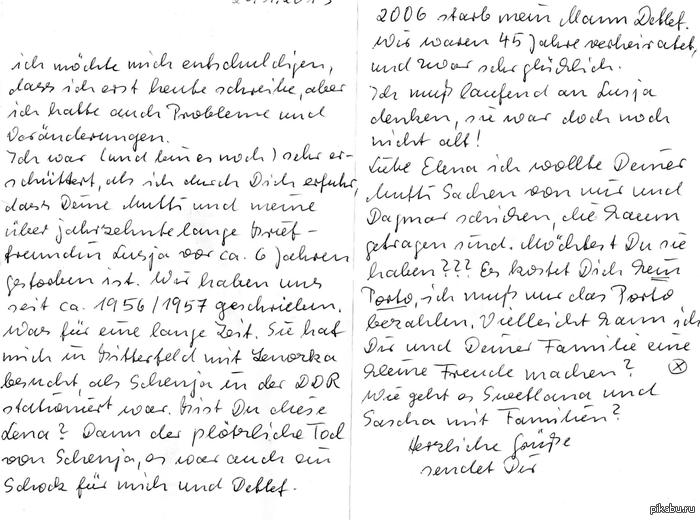 ich möchte mich entschuldigen,
dass ich erst heute schreibe, aber
ich hatte auch Probleme und
Veränderungen.
Ich war (und bin es noch) sehr er-
schüttert, als ich durch Dich erfuhr,
dass Deine Mutti und meine
über jahrzehntelange Brief-
freundin Lusja vor ca. 6 Jahren
gestorben ist. Wir haben uns
seit ca. 1956/1957 geschrieben.
Was für eine lange Zeit. Sie hat
mich in Bitterfeld mit Lenotschka
besucht, als Schenja in der DDR
stationiert war. Bist Du diese
Lena? Dann der plötzliche Tod
von Schenja, es war auch ein
Schock für mich und Detlef.
2006 starb mein Mann Detlef.
Wir waren 45 Jahre verheiratet,
und zwar sehr glücklich.
Ich muß laufend an Lusja
denken, sie war doch noch
nicht alt!
Liebe Elena ich wollte Deiner
Mutti Sachen von mir und
Dagmar schicken, die kaum
getragen sind. Möchtest Du sie
haben??? Es kostet Dich kein
Porto, ich muß nur das Porto
bezahlen. Vielleicht kann ich
Dir und Deiner Familie eine
kleine Freude machen? ⓧ
Wie geht es Swetlana und
Sascha mit Familien?
Herzliche Grüße
sendet Dir
pikabu.ru